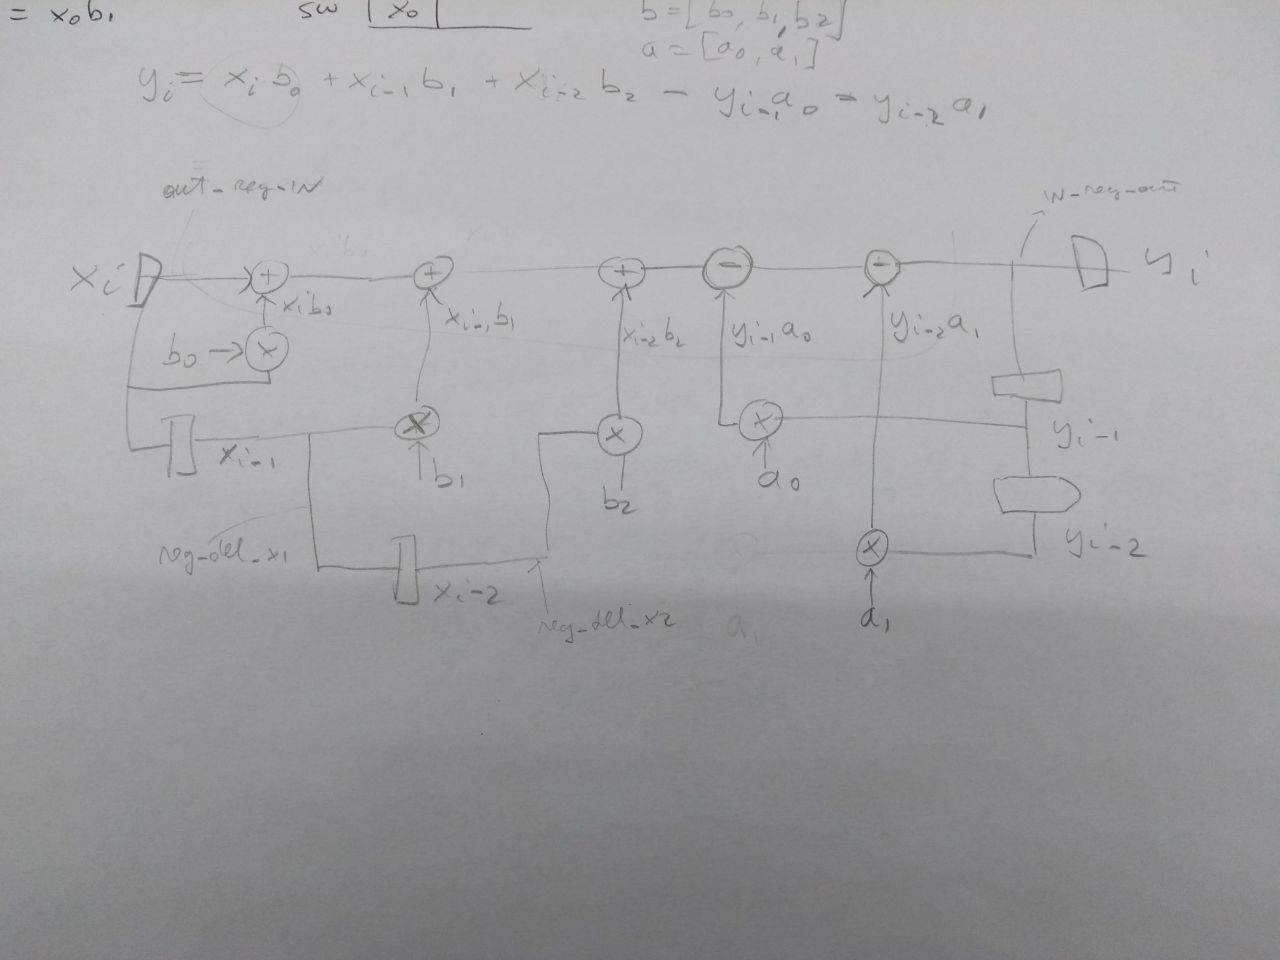 = x₀b₁
sw x₀
b = [b₀, b₁, b₂]
a = [a₀, a₁]
yᵢ = xᵢ b₀ + xᵢ₋₁ b₁ + xᵢ₋₂ b₂ - yᵢ₋₁ a₀ - yᵢ₋₂ a₁
out_reg_IN
IN_reg_out
xᵢ + + + - - yᵢ
xᵢb₀ xᵢ₋₁b₁ xᵢ₋₂b₂ yᵢ₋₁a₀ yᵢ₋₂a₁
b₀ → x
xᵢ₋₁ x x x yᵢ₋₁
b₁ b₂ a₀
reg_del_x1 x yᵢ₋₂
xᵢ₋₂ reg_del_x2 a₁ a₁